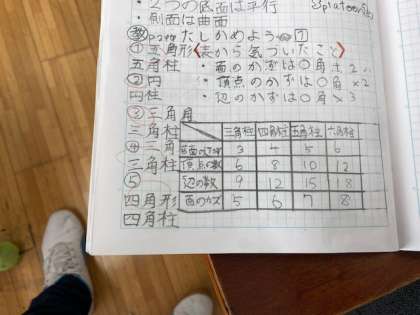 ・2つの底面は平行
・側面は曲面
Splatoon
教 たしかめよう 7
①五角形〈表から気づいたこと〉
五角柱 ・面のかずは〇角+2
②円 ・頂点のかずは〇角×2
円柱 ・辺のかずは〇角×3
③三角
三角柱 三角柱 四角柱 五角柱 六角柱
④三角 側面の数 3 4 5 6
三角柱 頂点の数 6 8 10 12
⑤ 辺の数 9 12 15 18
四角形 面のカズ 5 6 7 8
四角柱